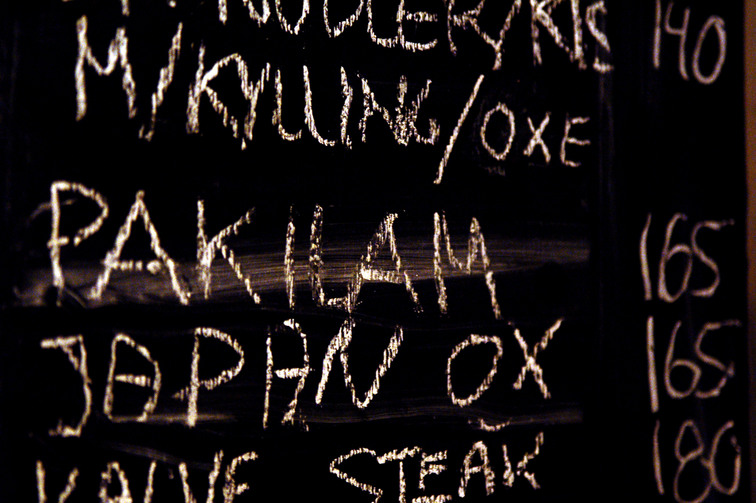 NUDLER/RIS 140
M/KYLLING/OXE
PAKILAM 165
JAPAN OX 165
KALVE STEAK 180